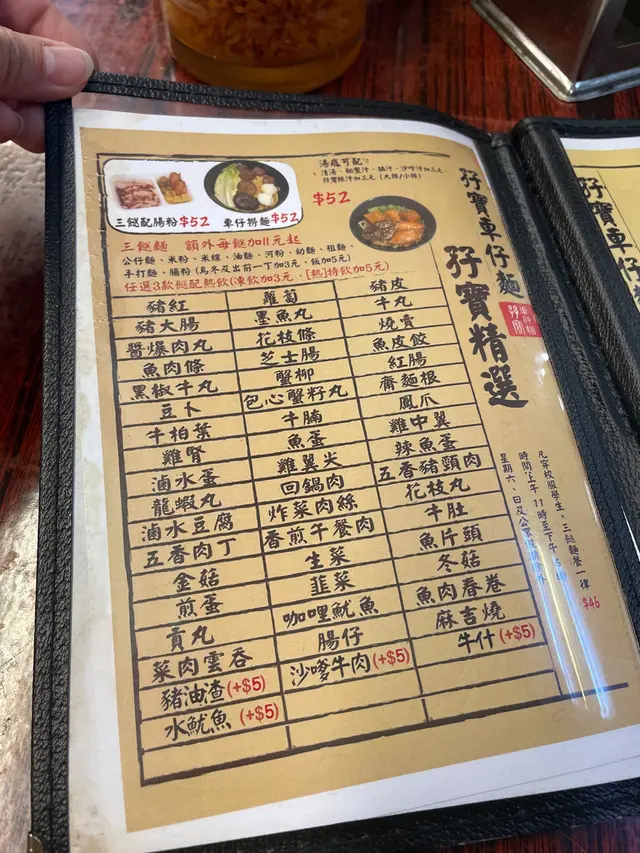 湯底可配：
清湯、麵豉汁、腩汁、沙嗲汁加三元、
孖寶辣汁加三元(大辣/小辣)
$52
三餸配腸粉$52 車仔撈麵$52
三餸麵 額外每餸加11元起
公仔麵、米粉、米線、油麵、河粉、幼麵、粗麵、
手打麵、腸粉(烏冬及出前一丁加3元，飯加5元)
任選3款餸配熱飲(凍飲加3元，[熱]特飲加5元)
豬紅 蘿蔔 豬皮
豬大腸 墨魚丸 牛丸
醬爆肉丸 花枝條 燒賣
魚肉條 芝士腸 魚皮餃
黑椒牛丸 蟹柳 紅腸
豆卜 包心蟹籽丸 齋麵根
牛柏葉 牛腩 鳳爪
雞腎 魚蛋 雞中翼
滷水蛋 雞翼尖 辣魚蛋
龍蝦丸 回鍋肉 五香豬頭肉
滷水豆腐 炸菜肉絲 花枝丸
五香肉丁 香煎午餐肉 牛肚
金菇 生菜 魚片頭
煎蛋 韮菜 冬菇
貢丸 咖哩魷魚 魚肉春卷
菜肉雲吞 腸仔 麻吉燒
豬油渣(+$5) 沙嗲牛肉(+$5) 牛什(+$5)
水魷魚(+$5)
孖寶車仔麵
孖寶精選
孖寶
車仔麵
凡穿校服學生，三餸麵餐一律
$46
時間上午11時至下午
星期六、日及公眾
孖寶車仔麵